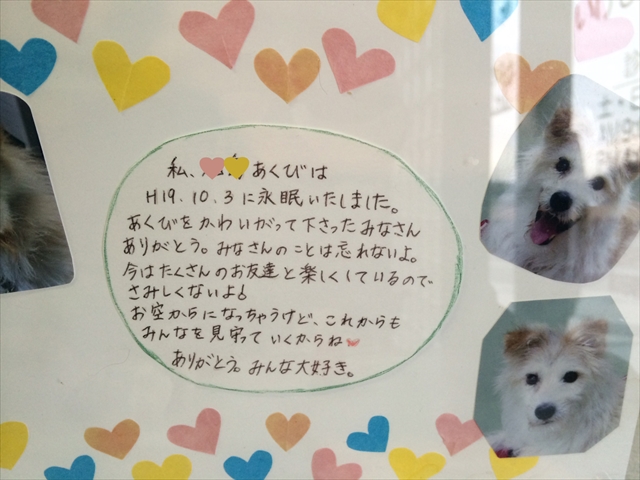 私、 あくびは
H19.10.3に永眠いたしました。
あくびをかわいがって下さったみなさん
ありがとう。みなさんのことは忘れないよ。
今はたくさんのお友達と楽しくしているので
さみしくないよ!
お空からになっちゃうけど、これからも
みんなを見守っていくからね
ありがとう。みんな大好き。